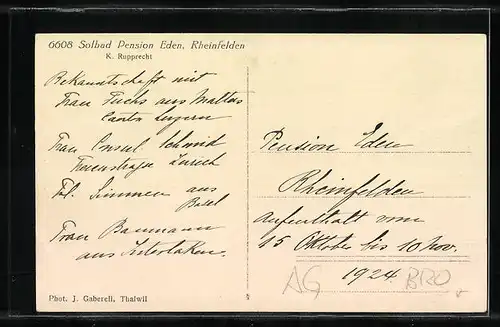 6608 Solbad Pension Eden, Rheinfelden
K. Rupprecht
Bekanntschaft mit
Frau Fuchs aus Malters
Canton Luzern
Frau Consul Schmid
Zürich
Frl. Simmen aus
Basel
Frau Baumann
aus Interlaken.
Pension Eden
Rheinfelden
Aufenthalt vom
15 Oktober bis 10 Nov.
1924
AG BRO
Phot. J. Gaberell, Thalwil